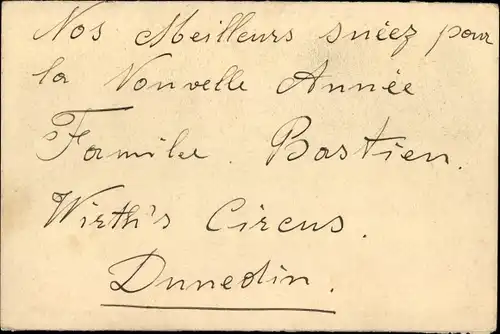 Nos Meilleurs suéez pour
la Nouvelle Année
Famile. Bastien.
Wirth's Circus.
Dunedin.